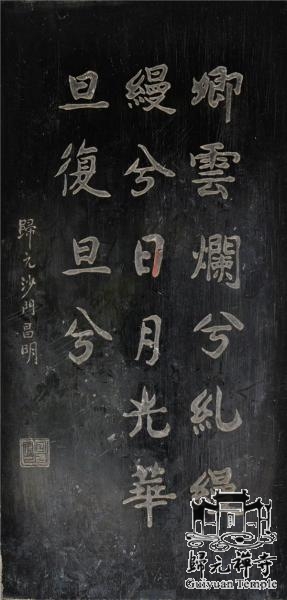 卿雲爛兮糺縵
縵兮日月光華
旦復旦兮
歸元沙門昌明
歸元禅寺
Guiyuan Temple